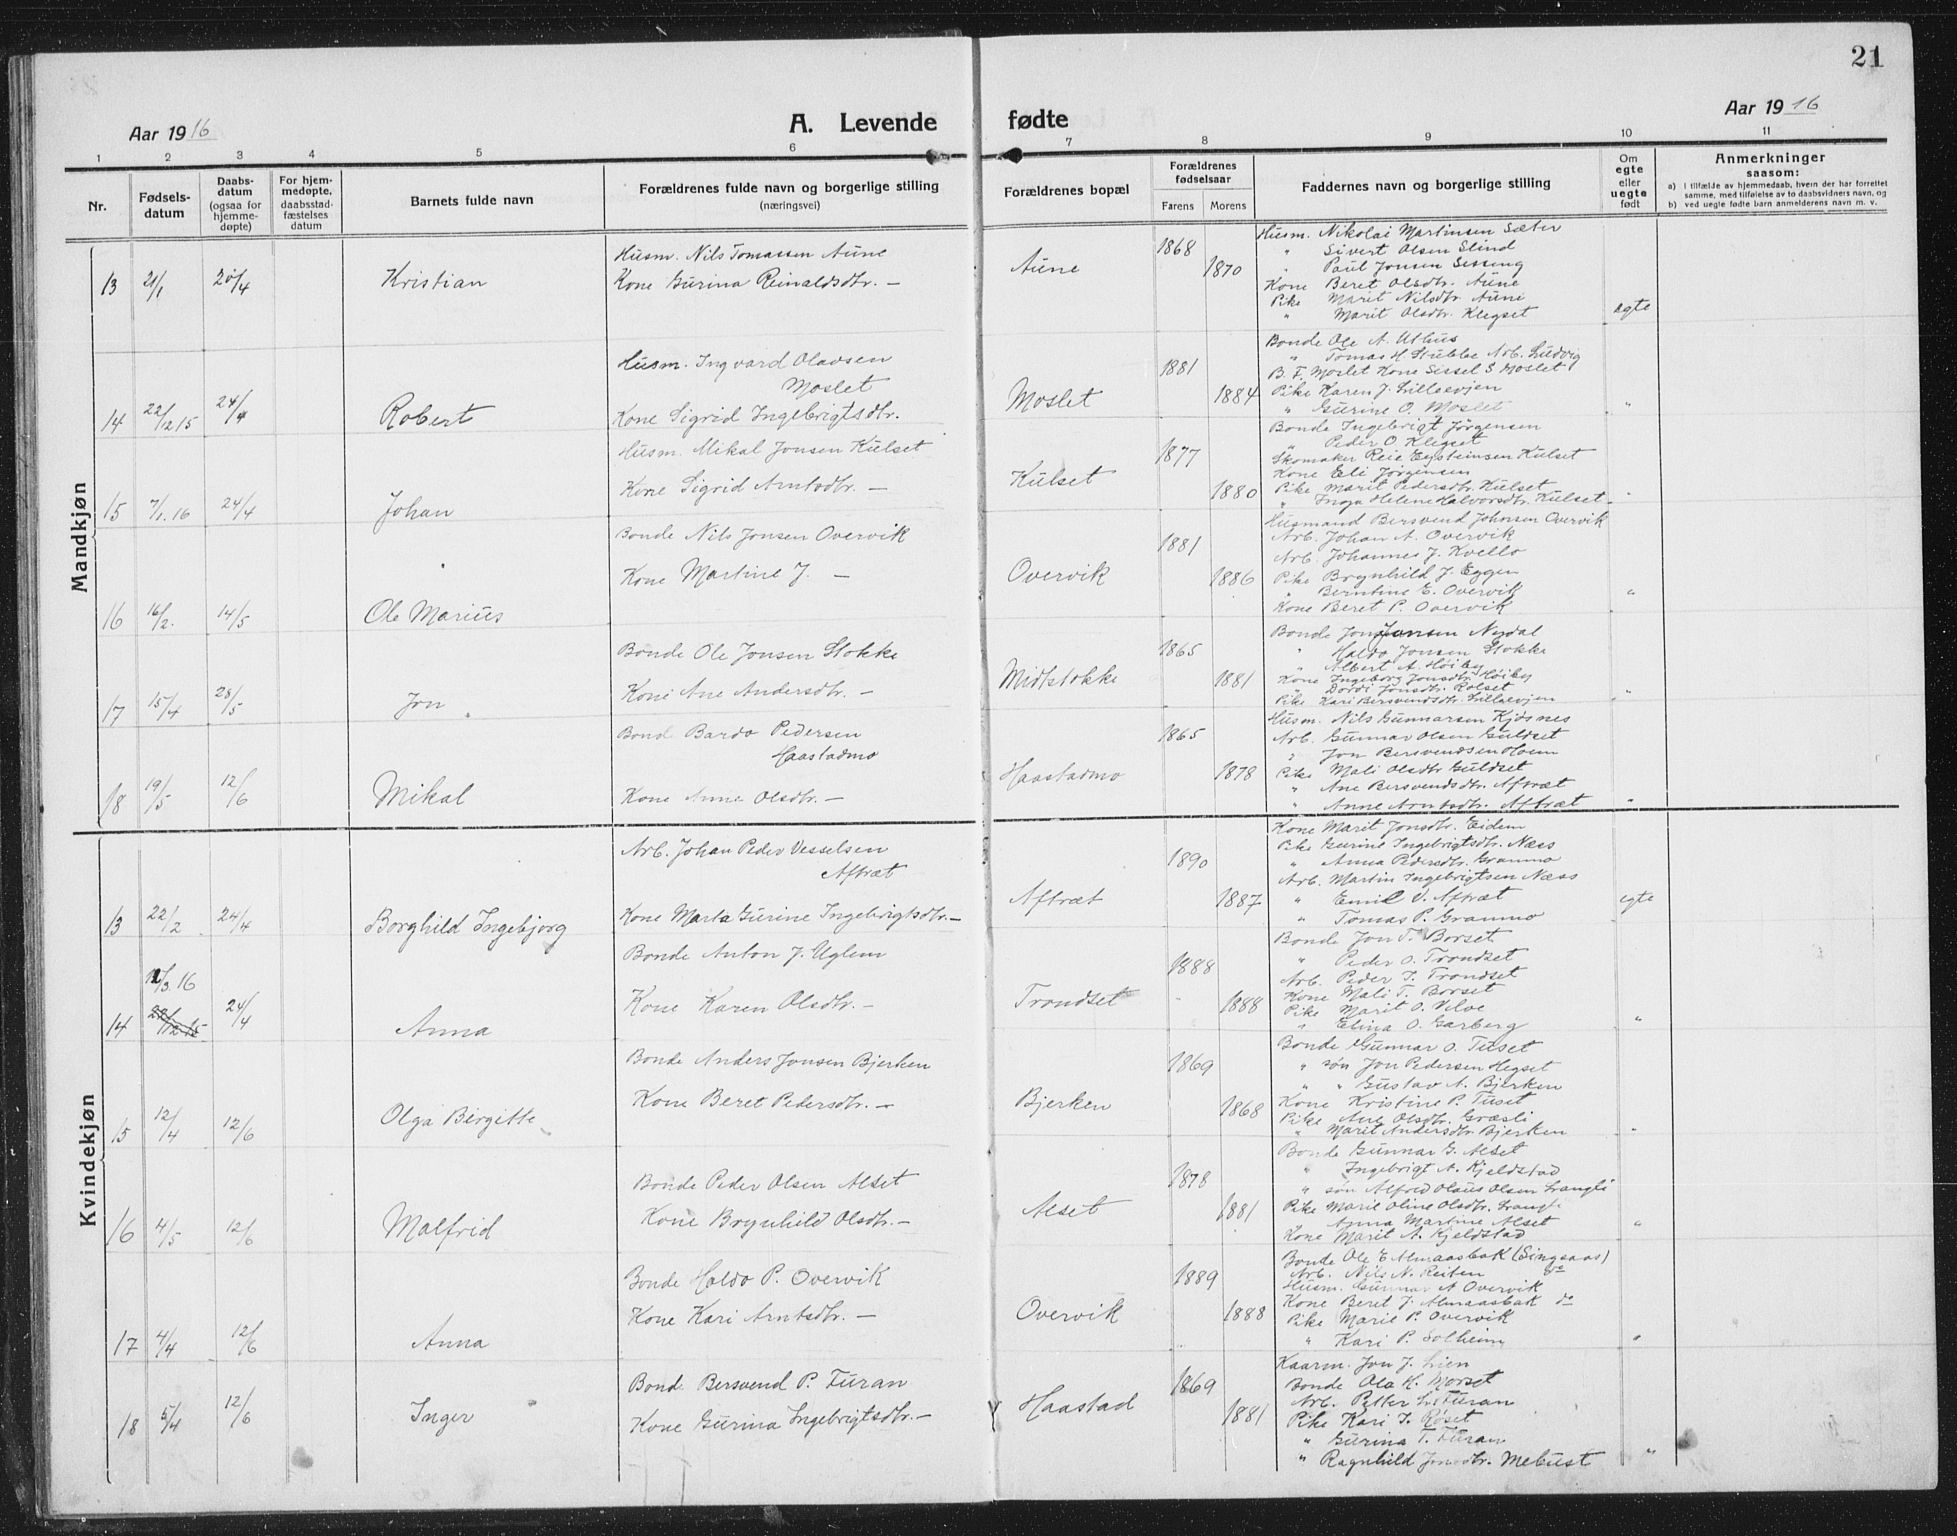 21
Aar 1916
A. Levende
fødte
Aar 1916
1 2 3 4 5 6 7 8 9 10 11
Nr.
Fødsels-
datum
Daabs-
datum
(ogsaa for
hjemme-
døpte)
For hjem-
medøpte,
daabsstad-
fæstelses
datum
Barnets fulde navn
Forældrenes fulde navn og borgerlige stilling
(næringsvei)
Forældrenes bopæl
Forældrenes
fødselsaar
Farens
Morens
Faddernes navn og borgerlige stilling
Om
egte
eller
uegte
født
Anmerkninger
saasom:
a) I tilfælde av hjemmedaab, hvem der har forrettet
samme, med tilføielse av to daabsvidners navn, og
b) ved uegte fødte barn anmelderens navn m. v.
Mandkjøn
13 21/1 24/4 Kristian
Husm. Nils Tomassen Aune
Kone Gurina Reinaldsdtr. —
Aune 1868 1870
Husm. Nikolai Martinsen Sæter
" Sivert Olsen Slind
" Paul Jonsen Sesseng
Kone Beret Olsdtr. Aune
Pike Marit Nilsdtr. Aune
" Marit Olsdtr. Klegset
egte
14 22/12 15 24/4 Robert
Husm. Ingvard Olavsen
Moslet
Kone Sigrid Ingebrigtsdtr.
Moslet 1881 1884
Bonde Ole A. Uthus
" Tomas H. Stubbe Arb. Ludvig
B. F. Moslet Kone Sissel S Moslet
Pike Karen J. Lillevjen
" Gurine O. Moslet
"
15 7/1. 16 24/4 Johan
Husm. Mikal Jonsen Kulset
Kone Sigrid Arntsdtr. —
Kulset 1877 1880
Bonde Ingebrigt Jørgensen
" Peder O. Klegset
Skomaker Reie Eysteinsen Kulset
Kone Eli Jørgensen
Pike Marit Pedersdtr. Kulset
" Inga Helene Halvorsdtr. Kulset
"
16 16/2. 14/5 Ole Marius
Bonde Nils Jonsen Overvik
Kone Martine J. —
Overvik 1881 1886
Husmand Bersvend Johnsen Overvik
Arb. Johan A. Overvik
Arb. Johannes J. Kvello
Pike Brynhild J. Eggen
" Berntine E. Overvik
Kone Beret P. Overvik
"
17 15/4 28/5 Jon
Bonde Ole Jonsen Stokke
Kone Ane Andersdtr. —
Midtstokke 1865 1881
Bonde Jon Jonsen Nydal
" Haldo Jonsen Stokke
" Albert A. Høiby
Kone Ingeborg Jonsdtr. Høiby
" Dordi Jonsdtr. Rolset
Pike Kari Bersvendsdtr. Lillevjen
"
18 19/5 12/6 Mikal
Bond Bardo Pedersen
Haastadmo
Kone Anne Olsdtr. —
Haastadmo 1865 1878
Husm. Nils Gunnarsen Kjøsnes
Arb. Gunnar Olsen Guldset
" Jon Bersvendsen Moen
Pike Mali Olsdtr Guldset
" Ane Bersvendsdtr. Aftræt
" Anne Arntsdtr. Aftræt
"
Kvindekjøn
13 22/2 24/4 Borghild Ingebjørg
Arb. Johan Peder Vesselsen
Aftræt
Kone Marta Gurine Ingebrigtsdtr. —
Aftræt 1890 1887
Kone Marit Jonsdtr. Eidem
Pike Gurine Ingebrigtsdtr. Næss
" Anna Pedersdtr. Grammo
Arb. Martin Ingebrigtsen Næss
" Emil V. Aftræt
" Tomas P. Grammo
egte
14 12/3. 16 22/12 15 24/4 Anna
Bonde Anton J. Uglem
Kone Karen Olsdtr. —
Trondset 1888 1888
Bonde Jon T. Borset
" Peder O. Trondset
Arb. Peder J. Trondset
Kone Mali T. Borset
Pike Marit O. Velve
" Elina O. Garberg
"
15 12/4 12/6 Olga Birgitte
Bonde Anders Jonsen Bjerken
Kone Beret Pedersdtr. —
Bjerken 1869 1868
Bonde Gunnar O. Tuset
" søn Jon Pedersen Hegset
" " Gustav A. Bjerken
Kone Kristine P. Tuset
Pike Ane Olsdtr. Græsli
" Marit Andersdtr. Bjerken
"
16 4/5 12/6 Malfrid
Bonde Peder Olsen Alset
Kone Brynhild Olsdtr. —
Alset 1878 1881
Bonde Gunnar G. Alset
" Ingebrigt A. Kjeldstad
" søn Alfred Olaus Olsen Langli
Pike Marie Oline Olsdtr. Langli
Anna Martine Alset
Kone Marit A. Kjeldstad
"
17 4/4 12/6 Anna
Bonde Haldo P. Overvik
Kone Kari Arntsdtr. —
Overvik 1889 1888
Bonde Ole E Almaasbak (Singsaas)
Arb. Nils N. Reiten do
Husm. Gunnar A Overvik
Kone Beret J. Almaasbak do
Pike Marie P. Overvik
" Kari P. Solheim
"
18 5/4 12/6 Inger
Bond Bersvend P. Furan
Kone Gurina Ingebrigtsdtr. —
Haastad 1869 1881
Kaarm. Jon J. Lien
Bonde Ola K. Morset
Arb. Petter L. Furan
Pike Kari J. Røset
" Gurina T. Furan
" Ragnhild Jonsdtr. Mebust
"